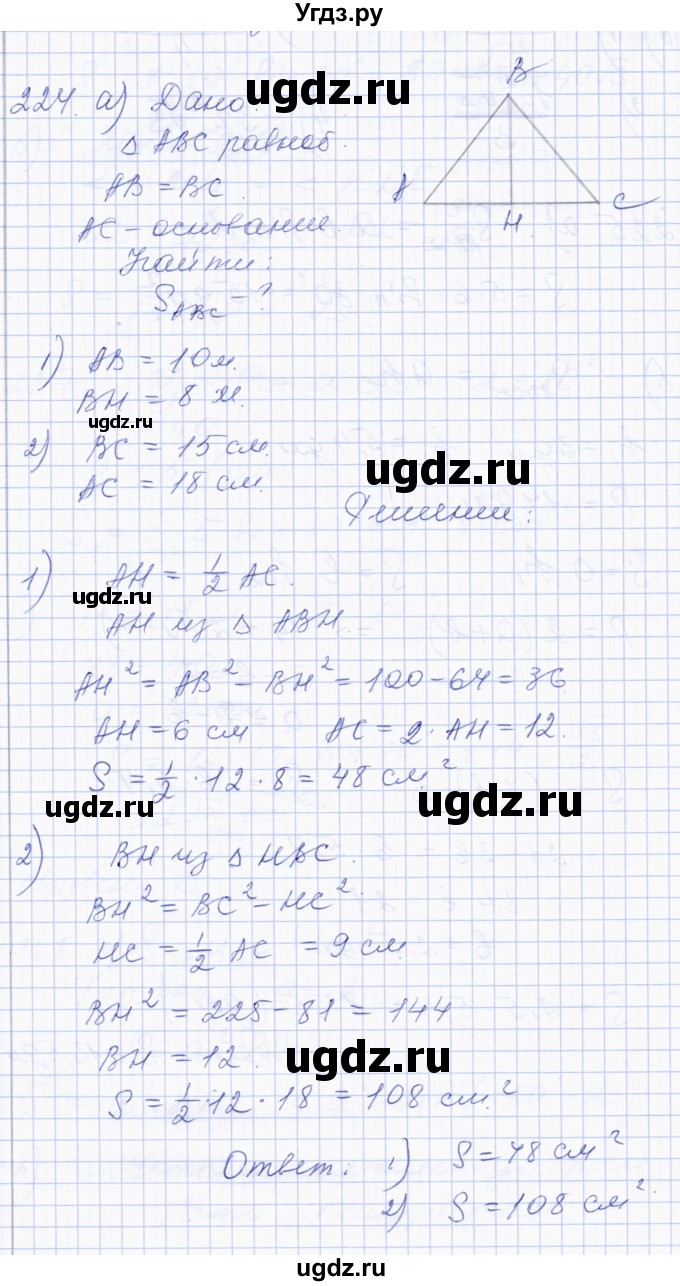 Угдз.ру
224. а) Дано:
ugdz.ru
△ ABC равноб.
AB = BC
AC – основание.
Найти:
S ABC – ?
B
A
H
C
1) AB = 10 м.
BH = 8 м.
ugdz.ru
2) BC = 15 см.
AC = 18 см.
ugdz.ru
Решение:
1) AH = 1/2 AC.
ugdz.ru
AH из △ ABH.
AH² = AB² – BH² = 100 – 64 = 36
AH = 6 см AC = 2 · AH = 12.
S = 1/2 · 12 · 8 = 48 см²
ugdz.ru
ugdz.ru
2) BH из △ HBC.
BH² = BC² – HC².
HC = 1/2 AC = 9 см.
BH² = 225 – 81 = 144
BH = 12.
ugdz.ru
S = 1/2 · 12 · 18 = 108 см²
Ответ: 1) S = 48 см²
2) S = 108 см².
ugdz.ru